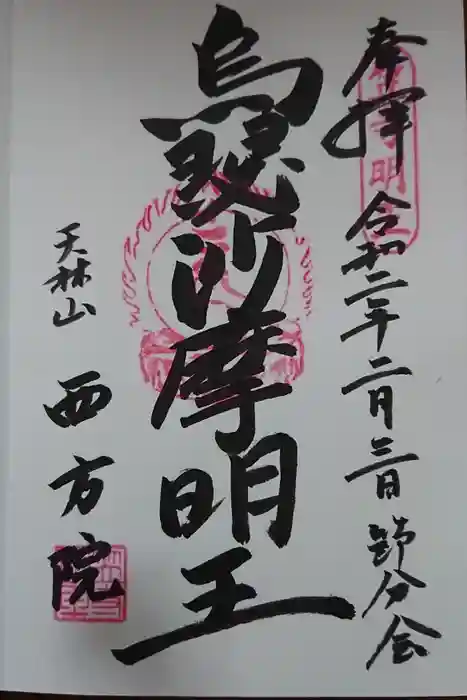 奉拝 令和二年二月三日 節分会
烏瑟沙摩明王
天林山 西方院